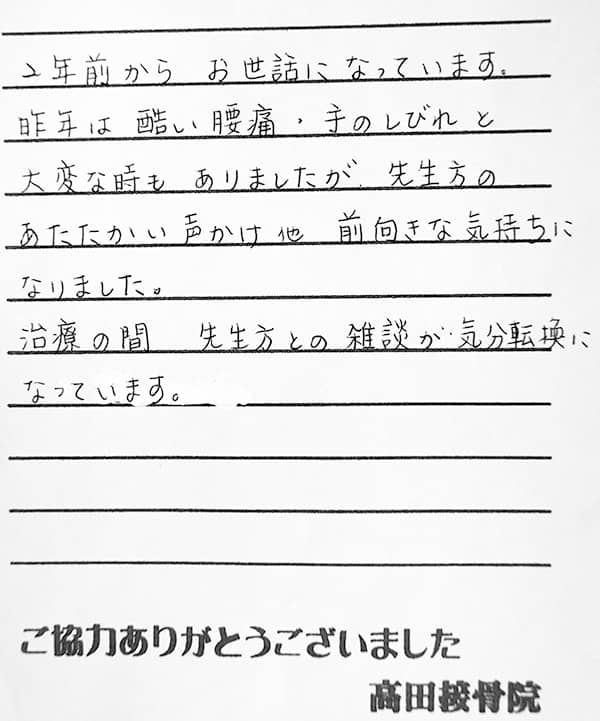 2年前から お世話になっています。
昨年は 酷い腰痛・手のしびれと
大変な時も ありましたが、先生方の
あたたかい声かけ他 前向きな気持ちに
なりました。
治療の間 先生方との雑談が気分転換に
なっています。
ご協力ありがとうございました
高田接骨院